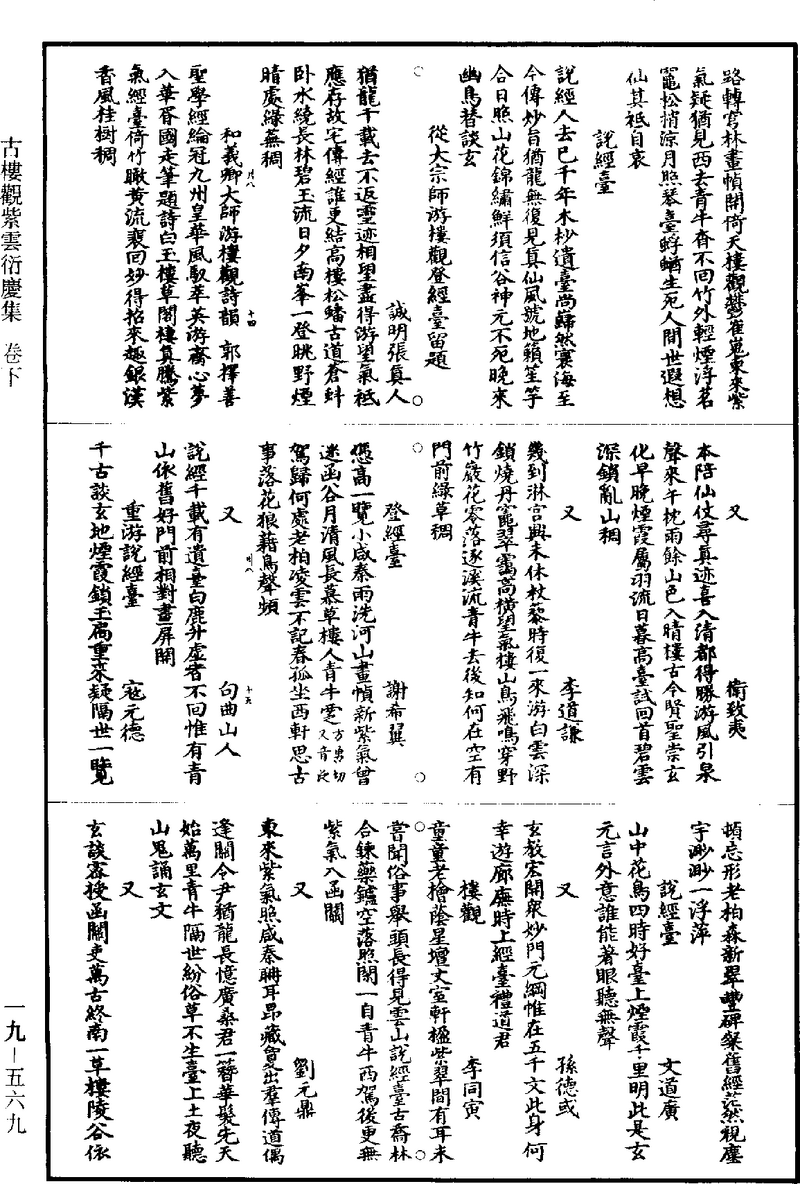 古樓觀紫雲衍慶集 卷下
一九—五六九
路轉穹林畫幀開倚天樓觀鬱崔嵬東來紫
氣疑猶見西去青牛杳不回竹外輕煙浮茗
竈松梢涼月照琴臺蜉蝣生死人間世遐想
仙其祗自哀
說經臺
說經人去已千年木杪遺臺尚巋然寰海至
今傳妙旨猶龍無復見真仙風號地籟笙竽
合日照山花錦繡鮮須信谷神元不死晚來
幽鳥替談玄
從大宗師游樓觀登經臺留題
誠明張真人
猶龍千載去不返靈迹相望盡得游望氣祗
應存故宅傳經誰更結高樓松蟠古道蒼虯
卧水繞長林碧玉流日夕南峯一登眺野煙
晴處綠蕪稠
和義卿大師游樓觀詩韻 郭擇善
卅八
十四
聖學經綸冠九州皇華風馭萃英游齋心夢
入華胥國走筆題詩白玉樓草閣棲真騰紫
氣經臺倚竹瞰黃流裹回妙得招來趣銀漢
香風桂樹稠
又 衛致夷
本陪仙仗尋真迹喜入清都得勝游風引泉
聲來午枕雨餘山色入晴樓古今賢聖崇玄
化早晚煙霞屬羽流日暮高臺試回首碧雲
深鎖亂山稠
又 李道謙
幾到淋宮興未休杖藜時復一來游白雲深
鎖燒丹竈翠靄高橫望氣樓山鳥飛鳴穿野
竹巖花零落逐溪流青牛去後知何在空有
門前綠草稠
登經臺 謝希巽
憑高一覽小咸秦雨洗河山畫幀新紫氣曾
迷函谷月清風長慕草樓人青牛
駕歸何處老柏凌雲不記春孤坐西軒思古
事落花狼藉鳥聲頻
又 句曲山人
卅八
十五
說經千載有遺臺白鹿升虛者不回惟有青
山依舊好門前相對畫屏開
重游說經臺 寇元德
千古談玄地煙霞鎖玉扃重來疑隔世一覽
頓忘形老柏森新翠豐碑粲舊經茫然視塵
宇渺渺一浮萍
說經臺 文道廣
山中花鳥四時好臺上煙霞千里明此是玄
元言外意誰能著眼聽無聲
又 孫德彧
玄教宏開眾妙門元綱惟在五千文此身何
幸遊廊廡時上經臺禮道君
樓觀 李同寅
童童老檜蔭星壇丈室軒楹紫翠間有耳未
嘗聞俗事舉頭長得見雲山說經臺古喬林
合鍊藥鑪空落照閑一自青牛西駕後更無
紫氣入函關
又 劉元鼎
東來紫氣照咸秦聃耳昂藏會出羣傳道偶
逢關令尹猶龍長憶廣桑君一簪華髮先天
始萬里青牛隔世紛俗草不生臺上土夜聽
山鬼誦玄文
又
玄談密授函關吏萬古終南一草樓陵谷依